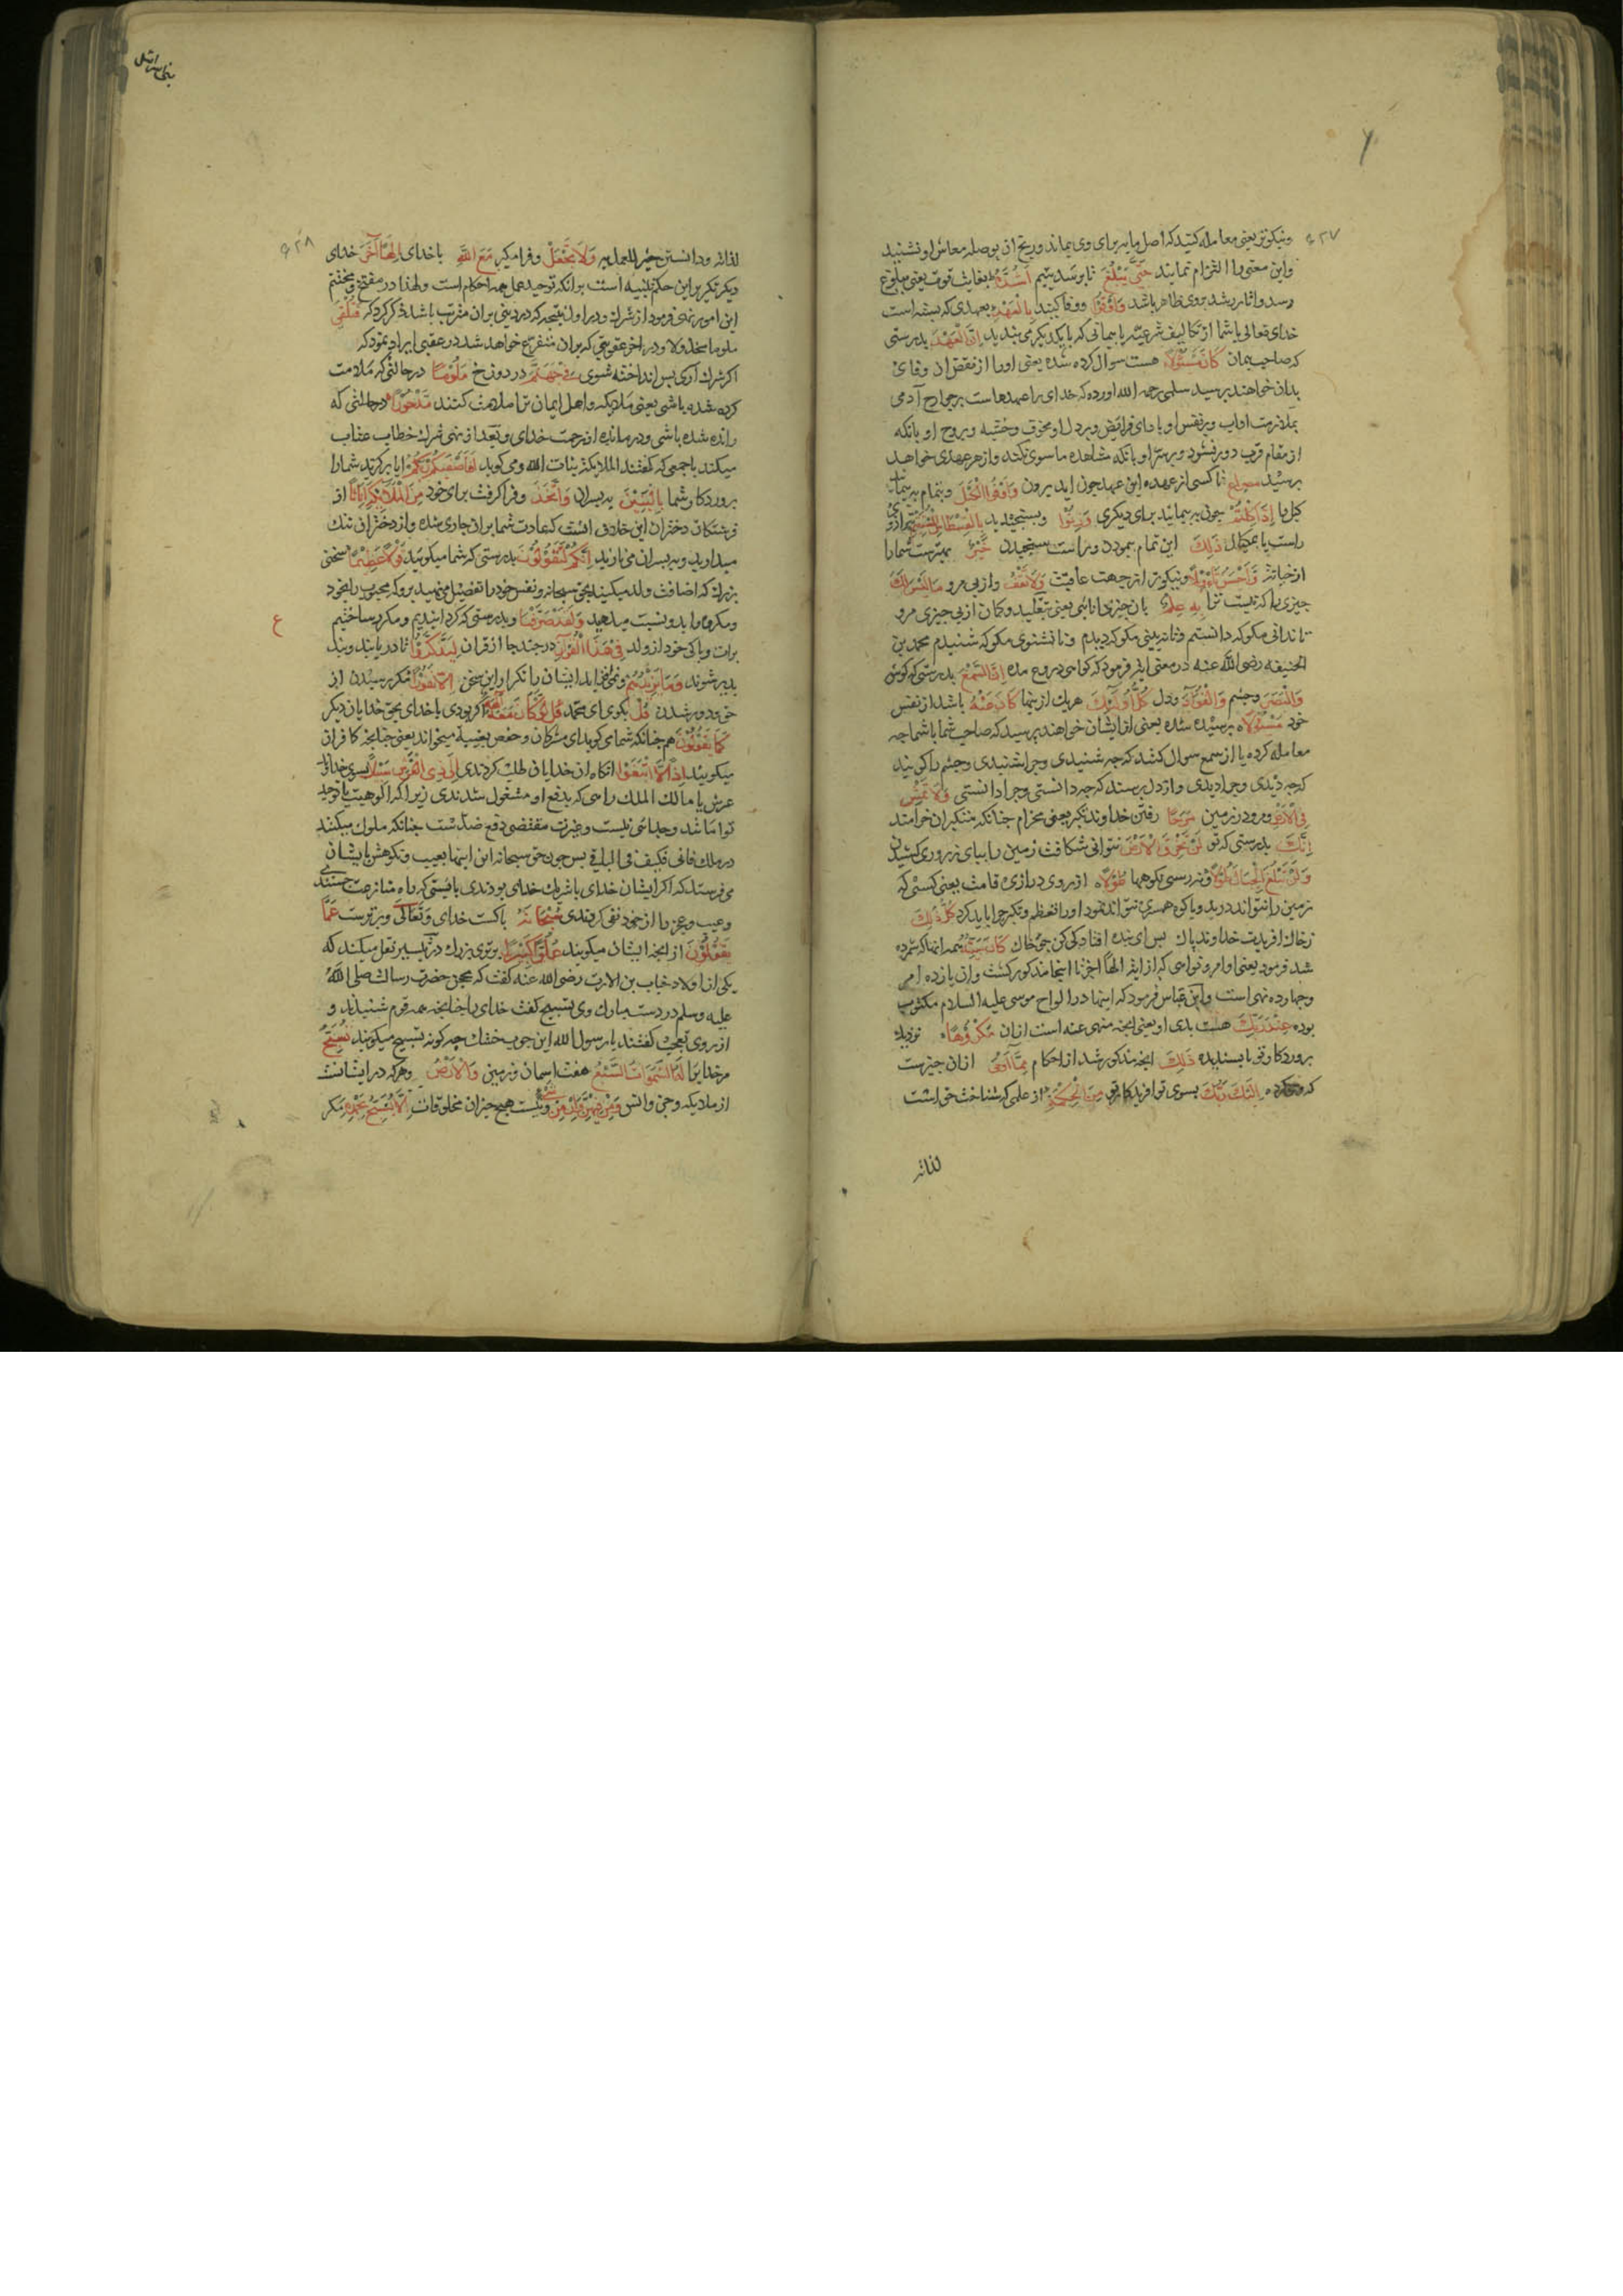 ونیکوتر یعنی معامله کنید که اصل مایه برای وی بماند و ربح ان بوصله معاش او نشیند
واین معنی را التزام نمایند حَتّٰی یَبْلُغَ تا برسد یتیم اَشُدَّهُ بغایت قوت یعنی ببلوغ
رسد واثار رشد بروی ظاهر باشد وَاَوْفُوا ووفا کنید بِالْعَهْدِ بعهدی که بسته است
خدای تعالی با شما از تکالیف شرعیه یا پیمانی که با یکدیگر می بندید اِنَّ الْعَهْدَ بدرستی
که صاحب پیمان کَانَ مَسْئُولًا هست سوال کرده شده یعنی اورا از نقض ان وفای
بدان خواهند پرسید سلمی رحمه الله اورده که خدای را عهدهاست بر جوارح آدمی
بملازمت اداب وبر نفس او بادای فرایض وبر دل او بخوف وخشیه وبروح او بانکه
از مقام قرب دور نشود وبر سرّ او بانکه مشاهده ما سوی نکند واز هر عهدی خواهند
پرسید تا کسی از عهده این عهد چون اید بیرون وَاَوْفُوا الْکَیْلَ وتمام بپیمائید
کیل را اِذَا کِلْتُمْ چون بپیمائید برای دیکری وَزِنُوا وبسنجید بِالْقِسْطَاسِ الْمُسْتَقِیمِ بترازوی
راست ذٰلِكَ این تمام پیمودن وراست سنجیدن خَیْرٌ بهترست شمارا
از خیانت وَاَحْسَنُ تَاْوِیلًا ونیکوتر از جهت عاقبت وَلَا تَقْفُ واز پی مرو مَا لَیْسَ لَكَ
چیزی را که نیست ترا بِهِ عِلْمٌ بان چیز دانائی یعنی بتقلید وکمان از پی چیزی مرو
تا ندانی مکو که دانستم وتا نه بینی مکو که دیدم وتا نشنوی مکو که شنیدم محمد بن
الحنیفه رضی الله عنه در معنی ایه فرمود که کواهی دروغ مده اِنَّ السَّمْعَ بدرستی که کوش
وَالْبَصَرَ وچشم وَالْفُؤَادَ ودل کُلُّ اُولٰئِكَ هر یك از ینها کَانَ عَنْهُ باشد از نفس
خود مَسْئُولًا پرسیده شده یعنی از ایشان خواهند پرسید که صاحب شما با شما چه
معامله کرده یا از سمع سوال کنند که چه شنیدی وچرا شنیدی وچشم را کویند
که چه دیدی وچرا دیدی واز دل پرسند که چه دانستی وچرا دانستی وَلَا تَمْشِ
فِی الْاَرْضِ ومرو در زمین مَرَحًا رفتن خداوند تکبر یعنی مخرام چنانکه متکبران خرامند
اِنَّكَ بدرستی که تو لَنْ تَخْرِقَ الْاَرْضَ نتوانی شکافت زمین را بپای
وَلَنْ تَبْلُغَ الْجِبَالَ ونرسی بکوهها طُولًا از روی درازی قامت یعنی کسی که
زمین را نتواند درید وبا کوه همسری نتواند نمود اورا تعظم وتکبر چرا باید کرد کُلُّ ذٰلِكَ
ز خاك افریدت خداوند پاك پس ای بنده افتادکی کن چو خاك کَانَ سَیِّئُهُ همه اینها که شمرده
شد فرمود یعنی اوامر ونواهی که از ایه الهاً اخر تا اینجا مذکور کشت وان یازده امر
وچهارده نهی است وابن عباس فرمود که اینها در الواح موسی علیه السلام مکتوب
بوده عِنْدَ رَبِّكَ هست بدی او یعنی انچه منهی عنه است ازان مَکْرُوهًا نزدیك
پروردکار تو ناپسندیده ذٰلِكَ انچه مذکور شد از احکام مِمَّا اَوْحٰی ازان چیزست
که وحی کرده اِلَیْكَ رَبُّكَ بسوی تو افریدکار تو مِنَ الْحِکْمَةِ از علمی که شناخت حق است
لذاته
لذاته ودانستن خیر للعمل به وَلَا تَجْعَلْ وفرا مکیر مَعَ اللّٰهِ با خدای اِلٰهًا آخَرَ خدای
دیکر تکریر این حکم تنبیه است بر انکه توحید همه احکام است ولهذا در مفتتح ومختتم
این امور نهی فرمود از شرك ودر اول نتیجه که در دنیی بران مترتب باشد ذکر کرد که
ملوما مخذولا ودر اخر عقوبتی که بران متفرع خواهد شد در عقبی ایراد نمود که فَتُلْقٰی
اکر شرك آری پس انداخته شوی فِی جَهَنَّمَ در دوزخ مَلُومًا در حالتی که ملامت
کرده شده باشی یعنی ملایکه واهل ایمان ترا ملامت کنند مَدْحُورًا در حالتی که
رانده شده باشی ودر مانده از رحمت خدای وبعد از نهی شرك خطاب عتاب
میکند با جمعی که کفتند الملایکة بنات الله ومی کوید اَفَاَصْفٰیکُمْ رَبُّکُمْ ایا برکزید شمارا
پروردکار شما بِالْبَنِینَ به پسران وَاتَّخَذَ وفرا کرفت برای خود مِنَ الْمَلٰئِکَةِ اِنَاثًا از
فرشتکان دختران این خلاف انست که عادت شما بران جاری شده واز دختران ننك
میدارید وبه پسران می نازید اِنَّکُمْ لَتَقُولُونَ بدرستی که شما میکوئید قَوْلًا عَظِیمًا سخنی
بزرك که اضافت ولد میکنید بحق سبحانه ونفس خود را تفضیل می نهید برو که محبوب را بخود
ومکروه را بدو نسبت میدهید وَلَقَدْ صَرَّفْنَا وبدرستی که کردانیدیم ومکرر ساختیم
برات وپاکی خود از ولد فِی هٰذَا الْقُرْآنِ در چند جا از قران لِیَذَّکَّرُوا تا در یابند وپند
پذیر شوند وَمَا یَزِیدُهُمْ ونمی افزاید ایشان را تکرار این سخن اِلَّا نُفُورًا مکر رمیدن از
حق ودور شدن قُلْ بکوی ای محمد لَوْ کَانَ مَعَهُ آلِهَةٌ اکر بودی با خدای بحق خدایان دیکر
کَمَا یَقُولُونَ هم چنانکه شما می کوئید ای مشرکان وحفص بغیبة میخواند یعنی چنانچه کافران
میکویند اِذًا لَابْتَغَوْا انکاه ان خدایان طلب کردندی اِلٰی ذِی الْعَرْشِ سَبِیلًا بسوی خداوند
عرش یا مالك الملك راهی که بدفع او مشغول شدندی زیرا که الوهیت با توحید
توامان شد وعزت مقتضی دفع ضدست چنانکه ملوك میکنند
در ملك فانی فکیف فی الباقی پس چون حق سبحانه این اینها بعیب ونکوهش
می فرستد که اکر ایشان خدای یا شریك خدای بودندی بایستی که راه منازعت جستندی
وعیب وعجز را از خود نفی کردندی سُبْحَانَهُ پاکست خدای وَتَعَالٰی وبرترست عَمَّا
یَقُولُونَ از انچه ایشان میکویند عُلُوًّا کَبِیرًا برتری بزرك در تیسیر نقل میکند که
یکی از اولاد خباب بن الارت رضی الله عنه کفت که حضرت رسالت صلی الله
علیه وسلم در دست مبارك وی تسبیح کفت خدای را چنانچه همه قوم شنیدند و
از روی تعجب کفتند یا رسول الله این چوب خشك چه کونه تسبیح میکوید تُسَبِّحُ
مر خدایرا لَهُ السَّمٰوَاتُ السَّبْعُ هفت اسمان وزمین وَالْاَرْضُ وهر که در ایشانست
از ملایکه وجن وانس وَمَنْ فِیهِنَّ وَاِنْ مِنْ شَیْءٍ ونیست هیچ چیز از مخلوقات اِلَّا یُسَبِّحُ بِحَمْدِهِ مکر